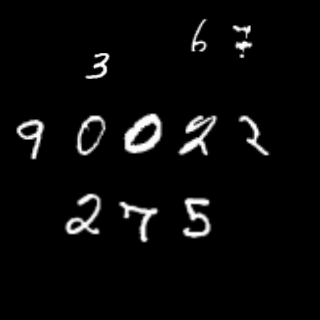 6 7
3
9 0 0 2 2
2 7 5